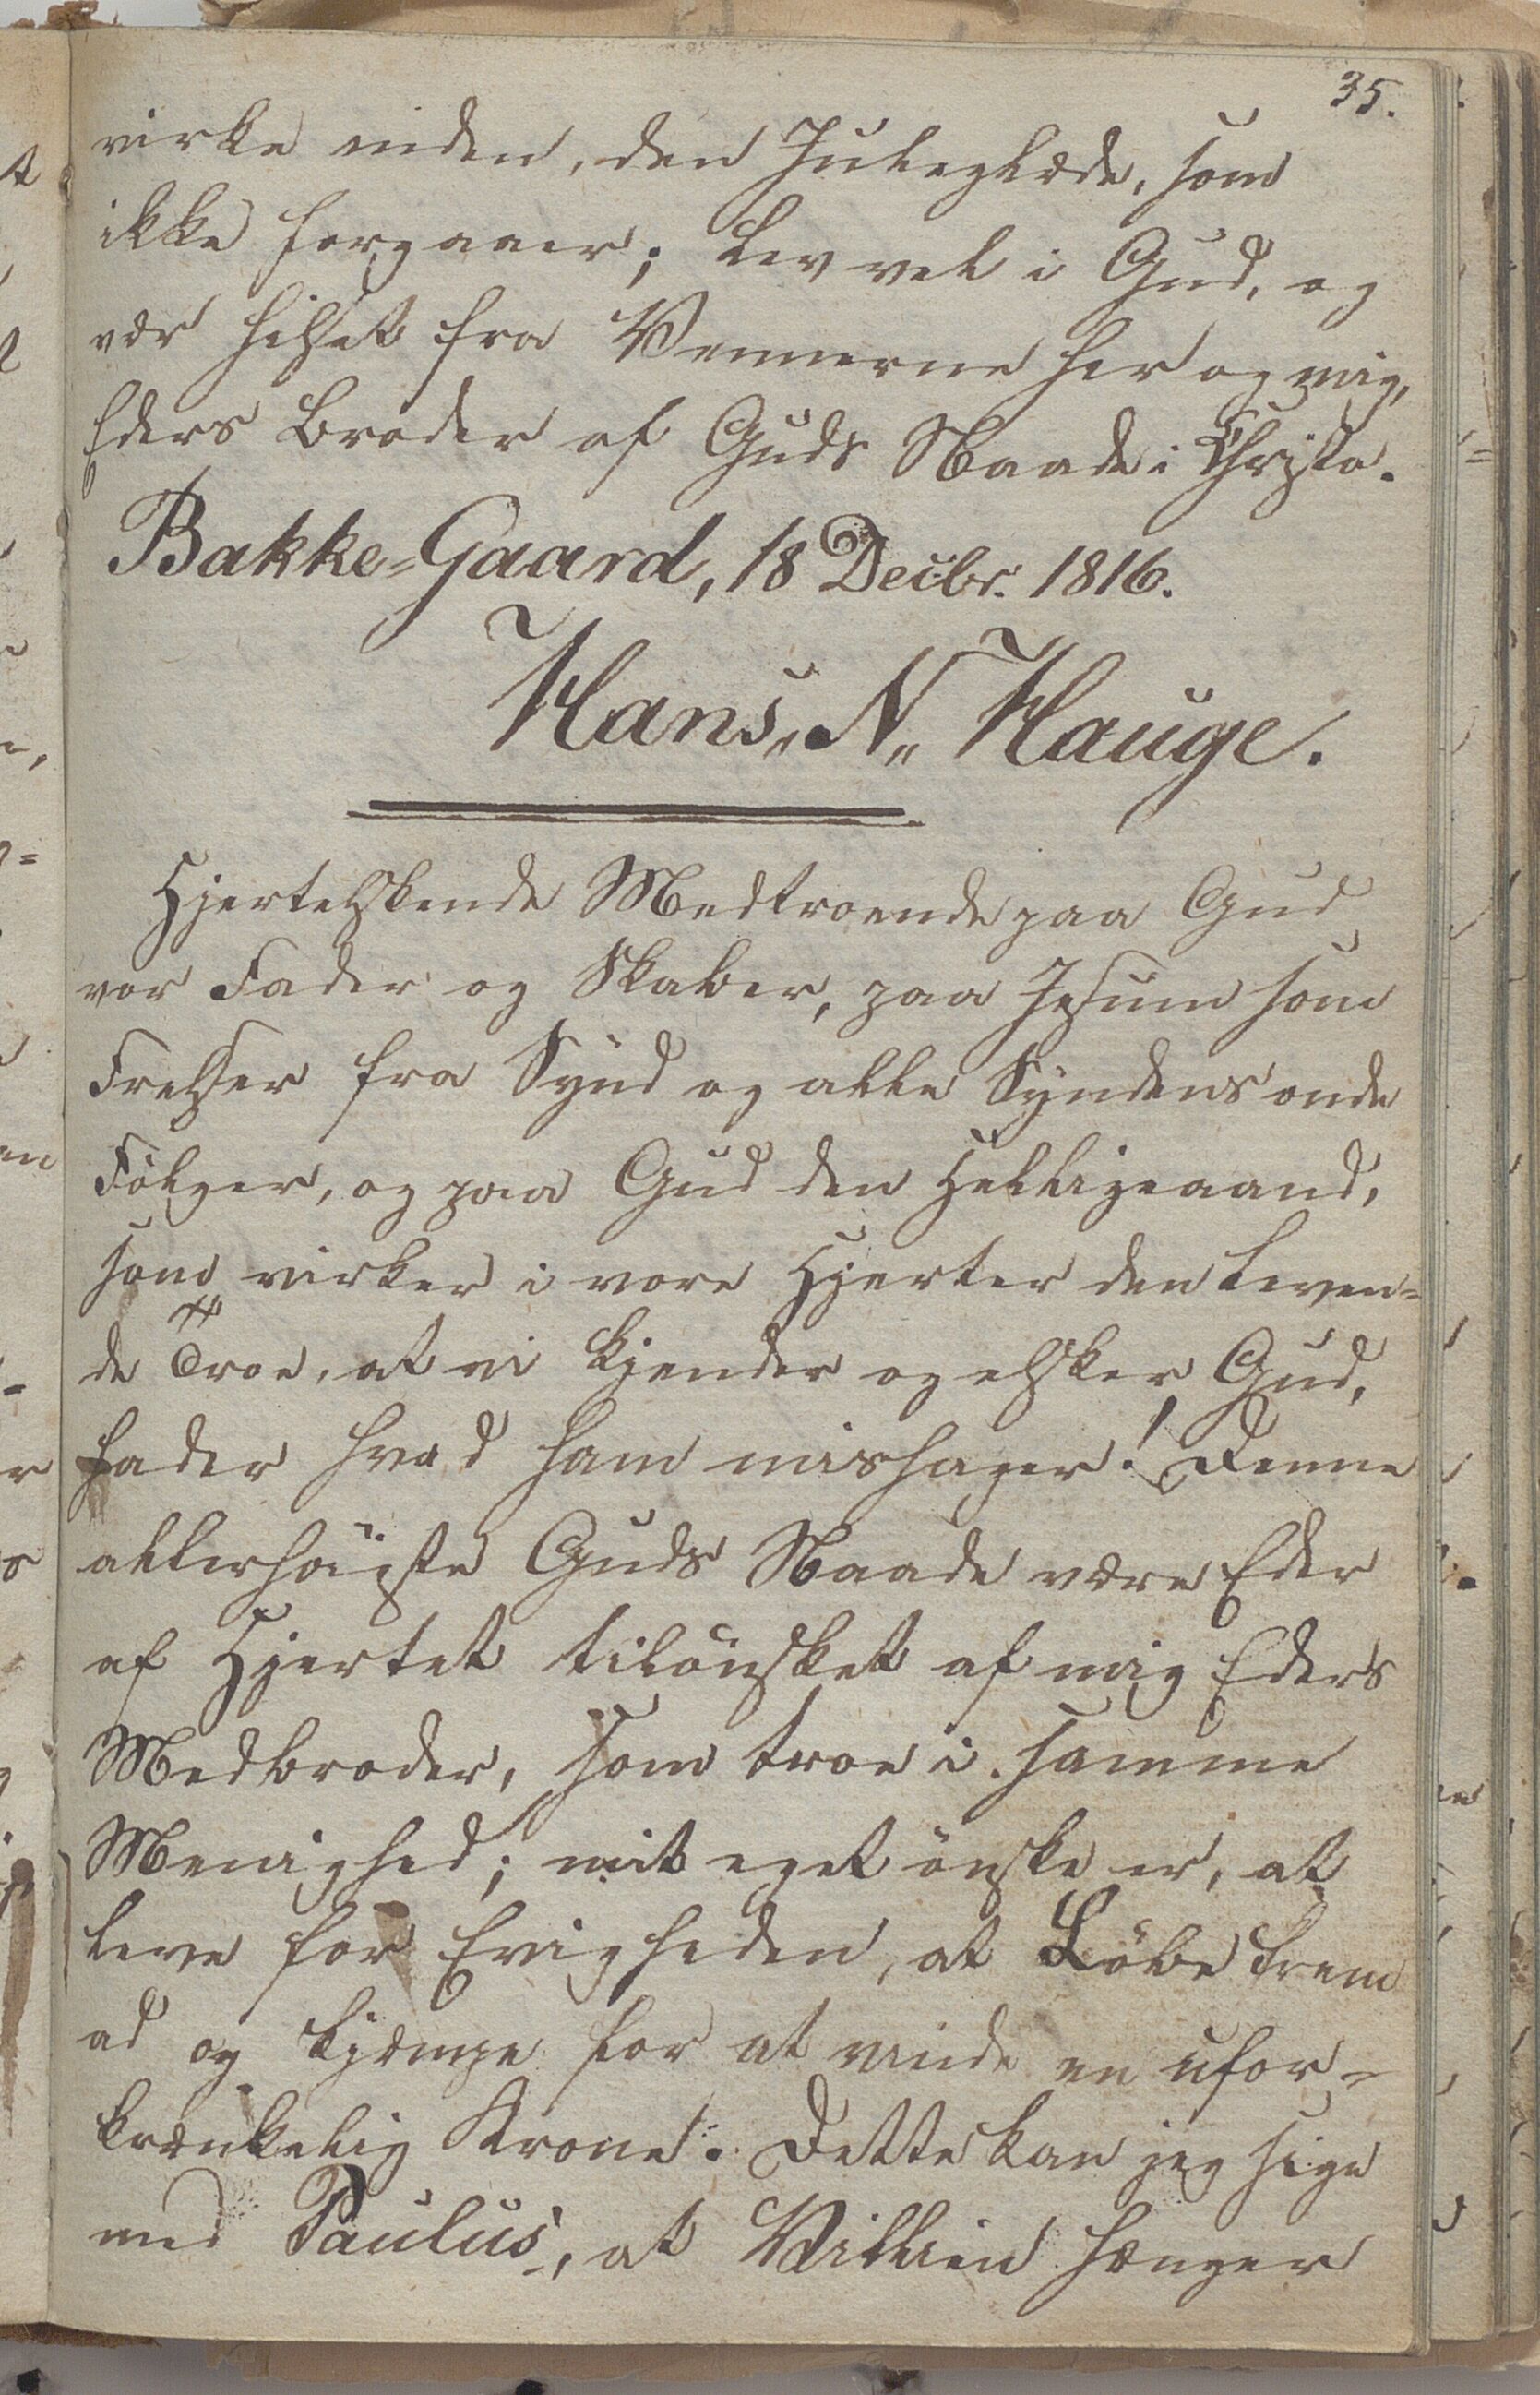 35.
virke inden, den Juleglæde, som
ikke forgaaer; Lev vel i Gud, og
vær hilset fra Vennerne her og mig,
Eders Broder af Guds Naade i Christo.
Bakke-Gaard, 18 Decbr. 1816.
Hans„ N„ Hauge.
Hjertelskende Medtroende paa Gud
vor Fader og Skaber, paa Jesum som
Frelser fra Synd og alle Syndens onde
Følger, og paa Gud den Helligeaand,
som virker i vore Hjerter den leven=
de Troe, at vi kjender og elsker Gud,
hader hvad ham mishager! Denne
allerhöigste Guds Naade være Eder
af Hjertet tilönsket af mig Eders
Medbroder, som troe i samme
Menighed; mit eget önske er, at
leve for Evigheden, at Löbe frem
ad og kjæmpe for at vinde en ufor=
krænkelig Krone. Dette kan jeg sige
med Paulus, at Villien hænger